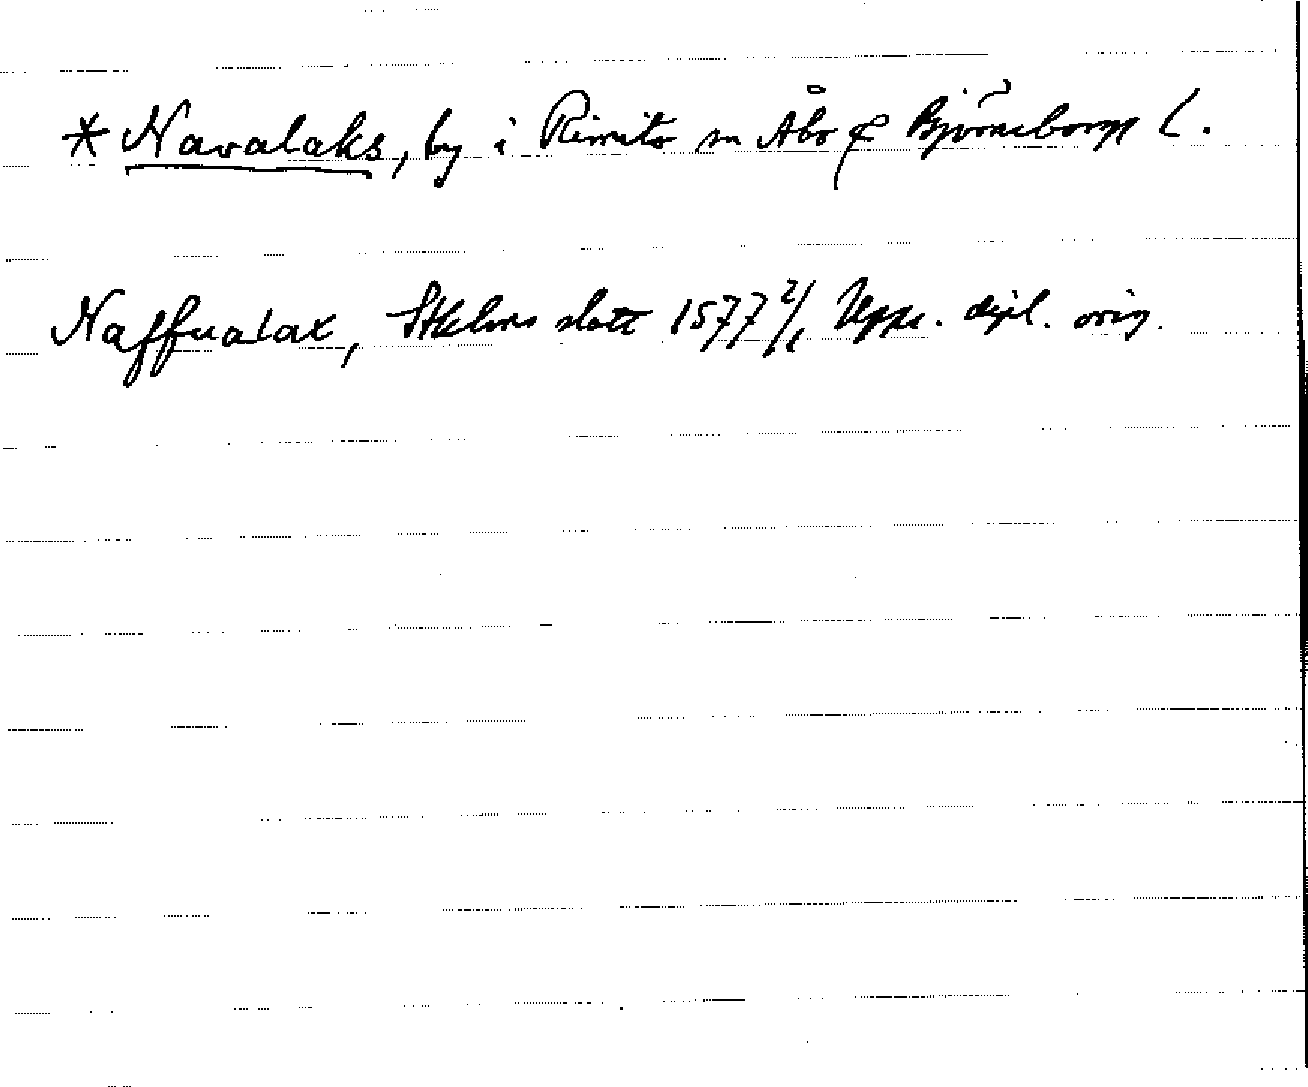 * Navalaks, by i Rimito sn Åbo & Björneborgs l.
Naffualax, Sthlms slott 1577 2/1 Upps. dipl. orig.